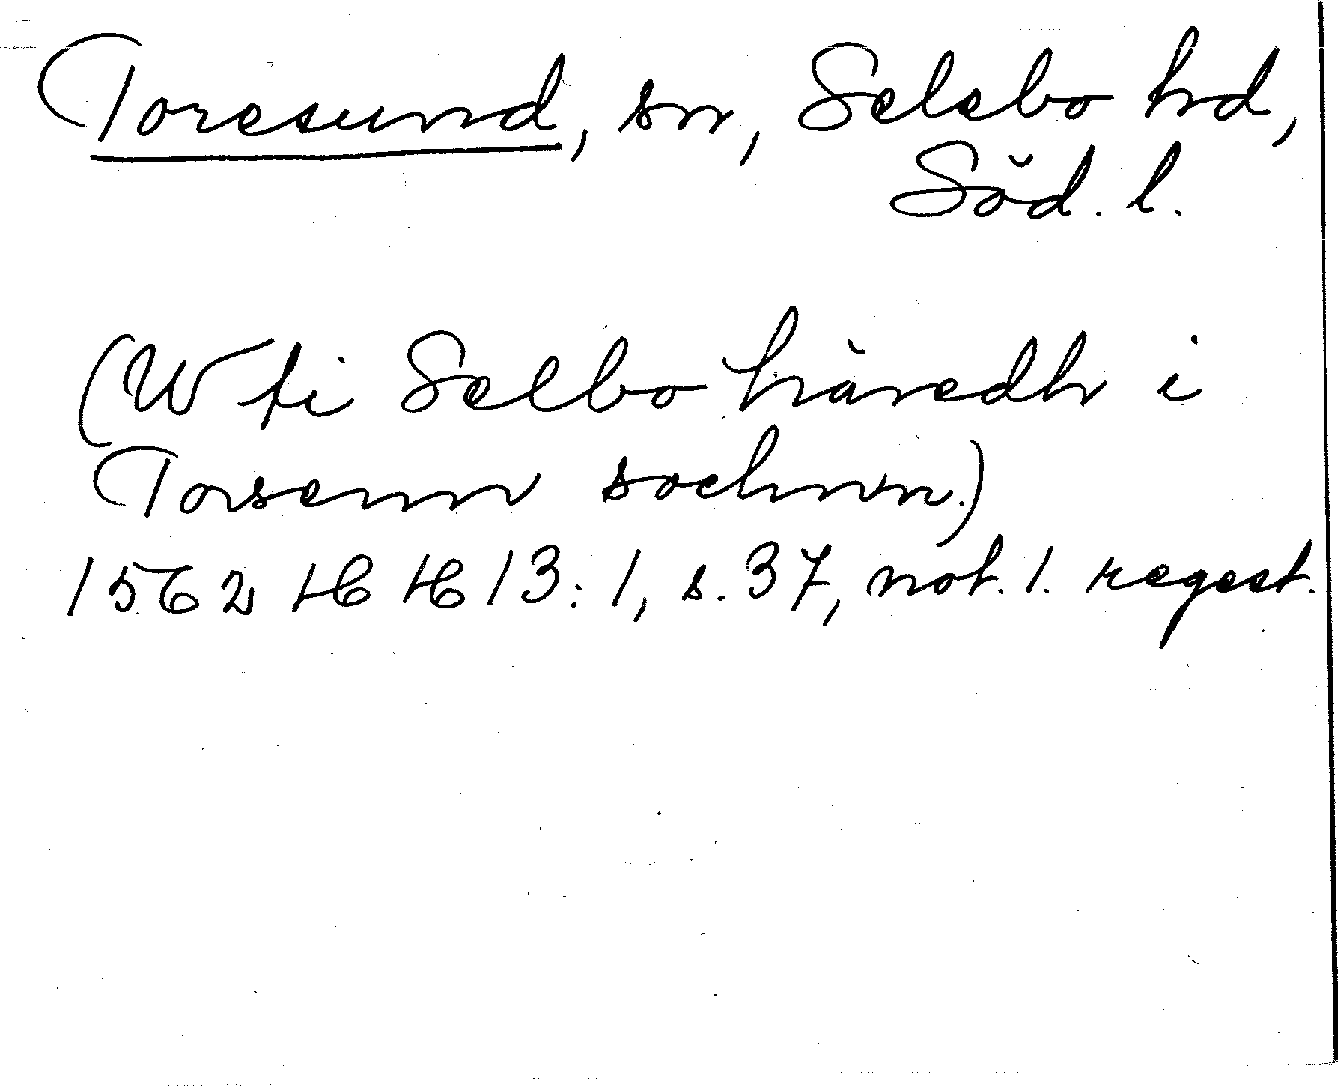 Toresund, sn, Selebo hd,
Söd. l.
(W ti Selbo häredh i
Torsenn sochnn.)
1562 HH 13:1, s. 37, not. 1. regest.